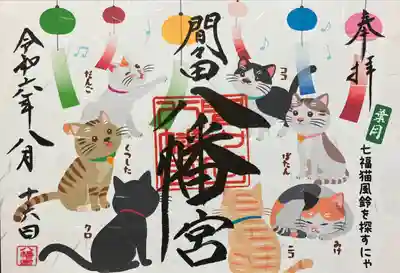 奉拝
葉月
七福猫風鈴を探すにゃ
間々田八幡宮
令和六年八月十六日
だんご
ココ
くつした
ぼたん
クロ
みけ